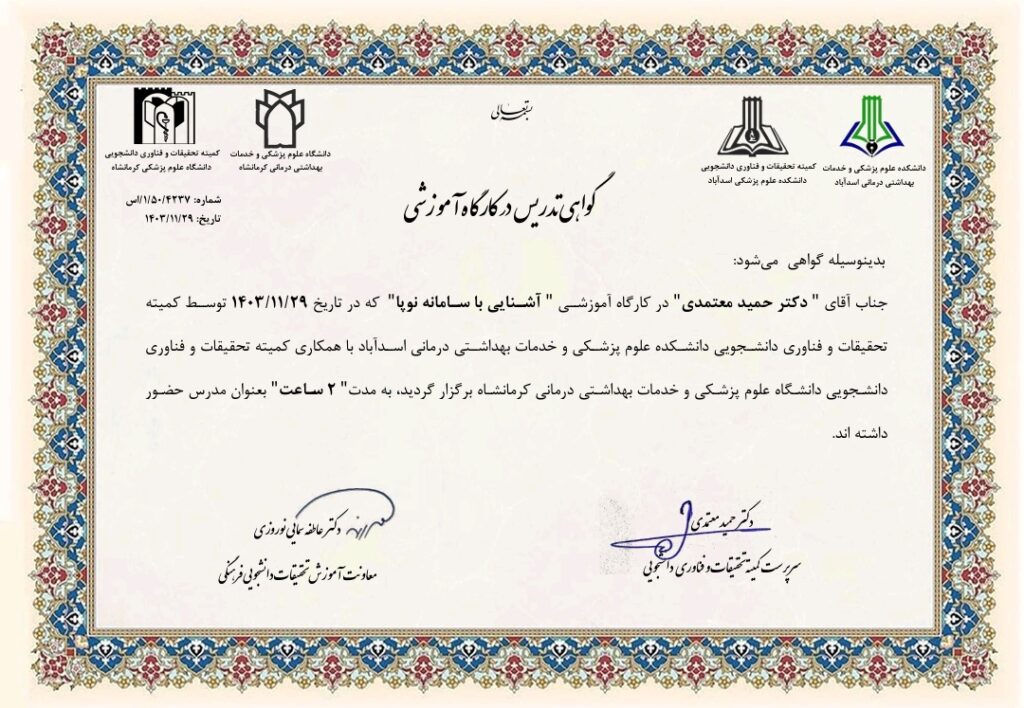 بسمه تعالی
دانشکده علوم پزشکی و خدمات
بهداشتی درمانی اسدآباد
کمیته تحقیقات و فناوری دانشجویی
دانشکده علوم پزشکی اسدآباد
دانشگاه علوم پزشکی و خدمات
بهداشتی درمانی کرمانشاه
کمیته تحقیقات و فناوری دانشجویی
دانشگاه علوم پزشکی کرمانشاه
شماره: ۱/۵۰/۴۲۳۷/اس
تاریخ: ۱۴۰۳/۱۱/۲۹
گواهی تدریس در کارگاه آموزشی
بدینوسیله گواهی می‌شود:
جناب آقای " دکتر حمید معتمدی" در کارگاه آموزشی " آشنایی با سامانه نوپا" که در تاریخ ۱۴۰۳/۱۱/۲۹ توسط کمیته
تحقیقات و فناوری دانشجویی دانشکده علوم پزشکی و خدمات بهداشتی درمانی اسدآباد با همکاری کمیته تحقیقات و فناوری
دانشجویی دانشگاه علوم پزشکی و خدمات بهداشتی درمانی کرمانشاه برگزار گردید، به مدت" ۲ ساعت" بعنوان مدرس حضور
داشته اند.
دکتر حمید معتمدی
سرپرست کمیته تحقیقات و فناوری دانشجویی
دکتر عاطفه سمائی نوروزی
معاونت آموزش تحقیقات دانشجویی فرهنگی